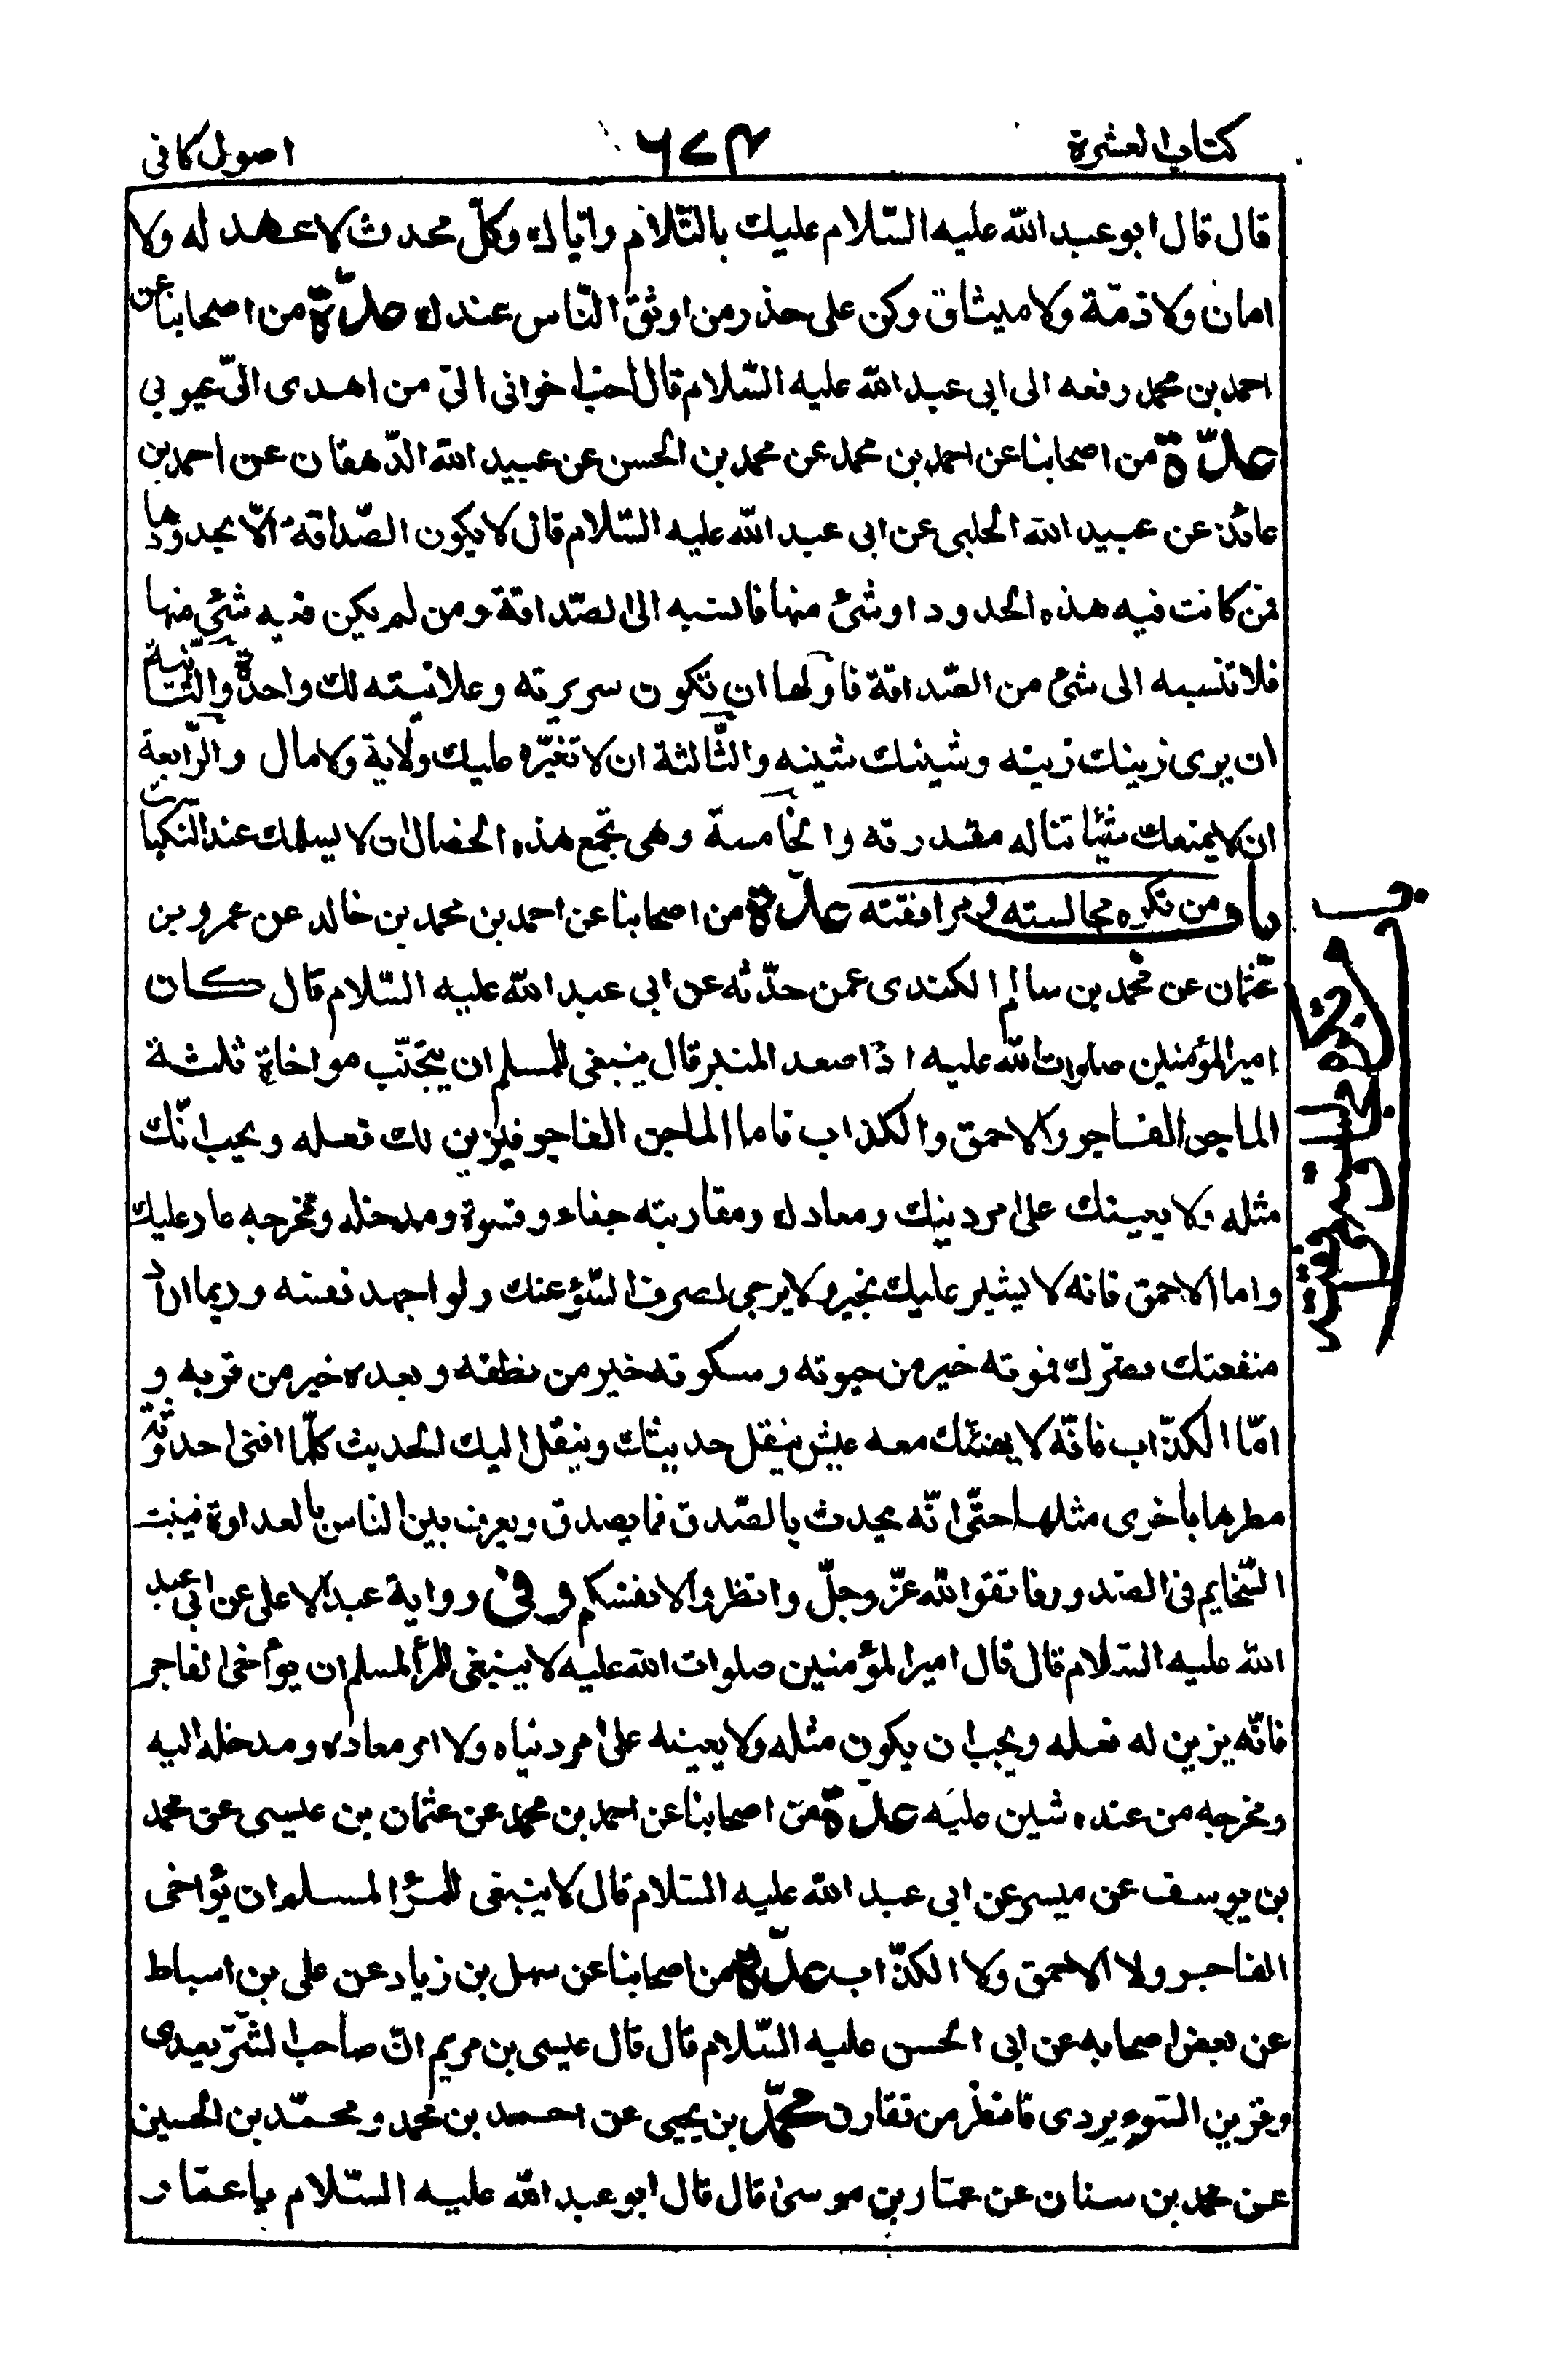 كتاب العشرة ٦٧٣ اصول كافى
قال قال ابو عبد الله عليه السّلام عليك بالتّلاد وايّاك وكلّ محدث لا عهد له ولا
امان ولا ذمّة ولا ميثاق وكن على حذر من اوثق النّاس عندك عدّة من اصحابنا عن
احمد بن محمد رفعه الى ابى عبد الله عليه السّلام قال احبّ اخوانى الىّ من اهدى الىّ عيوبى
عدّة من اصحابنا عن احمد بن محمد عن محمد بن الحسن عن عبيد الله الدّهقان عن احمد بن
عائذ عن عبيد الله الحلبى عن ابى عبد الله عليه السّلام قال لا يكون الصّداقة الّا بحدودها
فمن كانت فيه هذه الحدود او شئ منها فانسبه الى الصّداقة ومن لم يكن فيه شئ منها
فلا تنسبه الى شئ من الصّداقة فاوّلها ان تكون سريرته وعلانيته لك واحدة والثّانية
ان يرى زينك زينه وشينك شينه والثّالثة ان لا تغيّره عليك ولاية ولا مال والرّابعة
ان لا يمنعك شيئا تناله مقدرته والخامسة وهى تجمع هذه الخصال ان لا يسلمك عند النكبات
باب من تكره مجالسته ومرافقته عدّة من اصحابنا عن احمد بن محمد بن خالد عن عمرو بن
عثمان عن محمد بن سالم الكندى عمن حدّثه عن ابى عبد الله عليه السّلام قال كان
امير المؤمنين صلوات الله عليه اذا صعد المنبر قال ينبغى للمسلم ان يتجنّب مواخاة ثلثة
الماجن الفاجر والاحمق والكذاب فاما الماجن الفاجر فيزين لك فعله ويحب انّك
مثله ولا يعينك على امر دينك ومعادك ومقاربته جفاء وقسوة ومدخله ومخرجه عار عليك
واما الاحمق فانه لا يشير عليك بخير ولا يرجى لصرف السّوء عنك ولو اجهد نفسه وربما اراد
منفعتك فضرّك فموته خير من حيوته وسكوته خير من نطقه وبعده خير من قربه و
امّا الكذّاب فانّه لا يهنئك معه عيش ينقل حديثك وينقل اليك الحديث كلّما افنى احدوثة
مطرها باخرى مثلها حتّى انّه يحدث بالصّدق فما يصدق ويعرف بين الناس بالعداوة فينبت
السّخايم فى الصّدور فاتقوا الله عزّ وجلّ وانظروا لانفسكم وفى رواية عبد الاعلى عن ابى عبد
الله عليه السّلام قال قال امير المؤمنين صلوات الله عليه لا ينبغى للمرأ المسلم ان يوأخى الفاجر
فانّه يزين له فعله ويحب ان يكون مثله ولا يعينه على امر دنياه ولا امر معاده ومدخله اليه
ومخرجه من عنده شين عليه عدّة من اصحابنا عن احمد بن محمد عن عثمان بن عيسى عن محمد
بن يوسف عن ميسر عن ابى عبد الله عليه السّلام قال لا ينبغى للمرأ المسلم ان يؤاخى
الفاجر ولا الاحمق ولا الكذّاب عدّة من اصحابنا عن سهل بن زياد عن على بن اسباط
عن بعض اصحابه عن ابى الحسن عليه السّلام قال قال عيسى بن مريم انّ صاحب الشّرّ يعدى
وقرين السّوء يردى فانظر من تقارن محمّد بن يحيى عن احمد بن محمد ومحمّد بن الحسين
عن محمد بن سنان عن عمّار بن موسى قال قال ابو عبد الله عليه السّلام يا عمّار